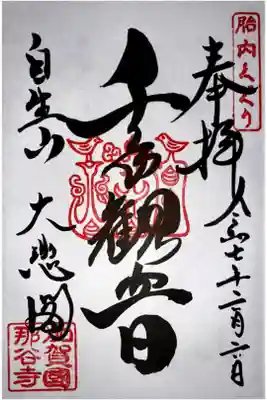 胎内くぐり
奉拝
令和七年十二月六日
千手観世音
自生山
大悲閣
加賀國
那谷寺